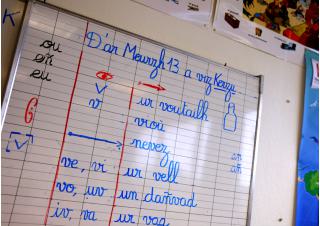 K
ou
eñ
eu
D'ar Meurzh 13 a viz Kerzu
v
v ur voutailh
6
viou
nevez
[v]
ve, vi ur vell
añ
vo, uv un dañvad
iv, va ur vag